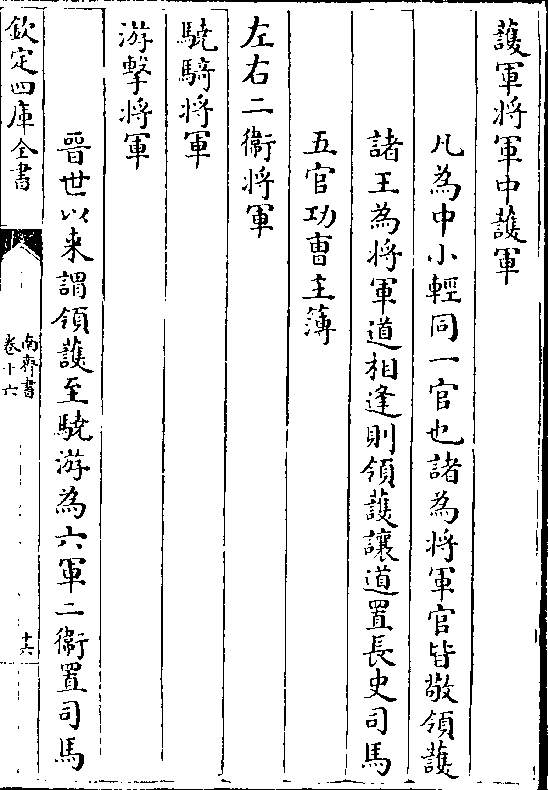 護軍將軍中護軍
凡為中小輕同一官也諸為將軍官皆敬領護
諸王為將軍道相逢則領護讓道置長史司馬
五官功曹主簿
左右二衛將軍
驍騎將軍
游擊將軍
晉世以来謂領護至驍游為六軍二衛置司馬
欽定四庫全書
南齊書
卷十六
十六